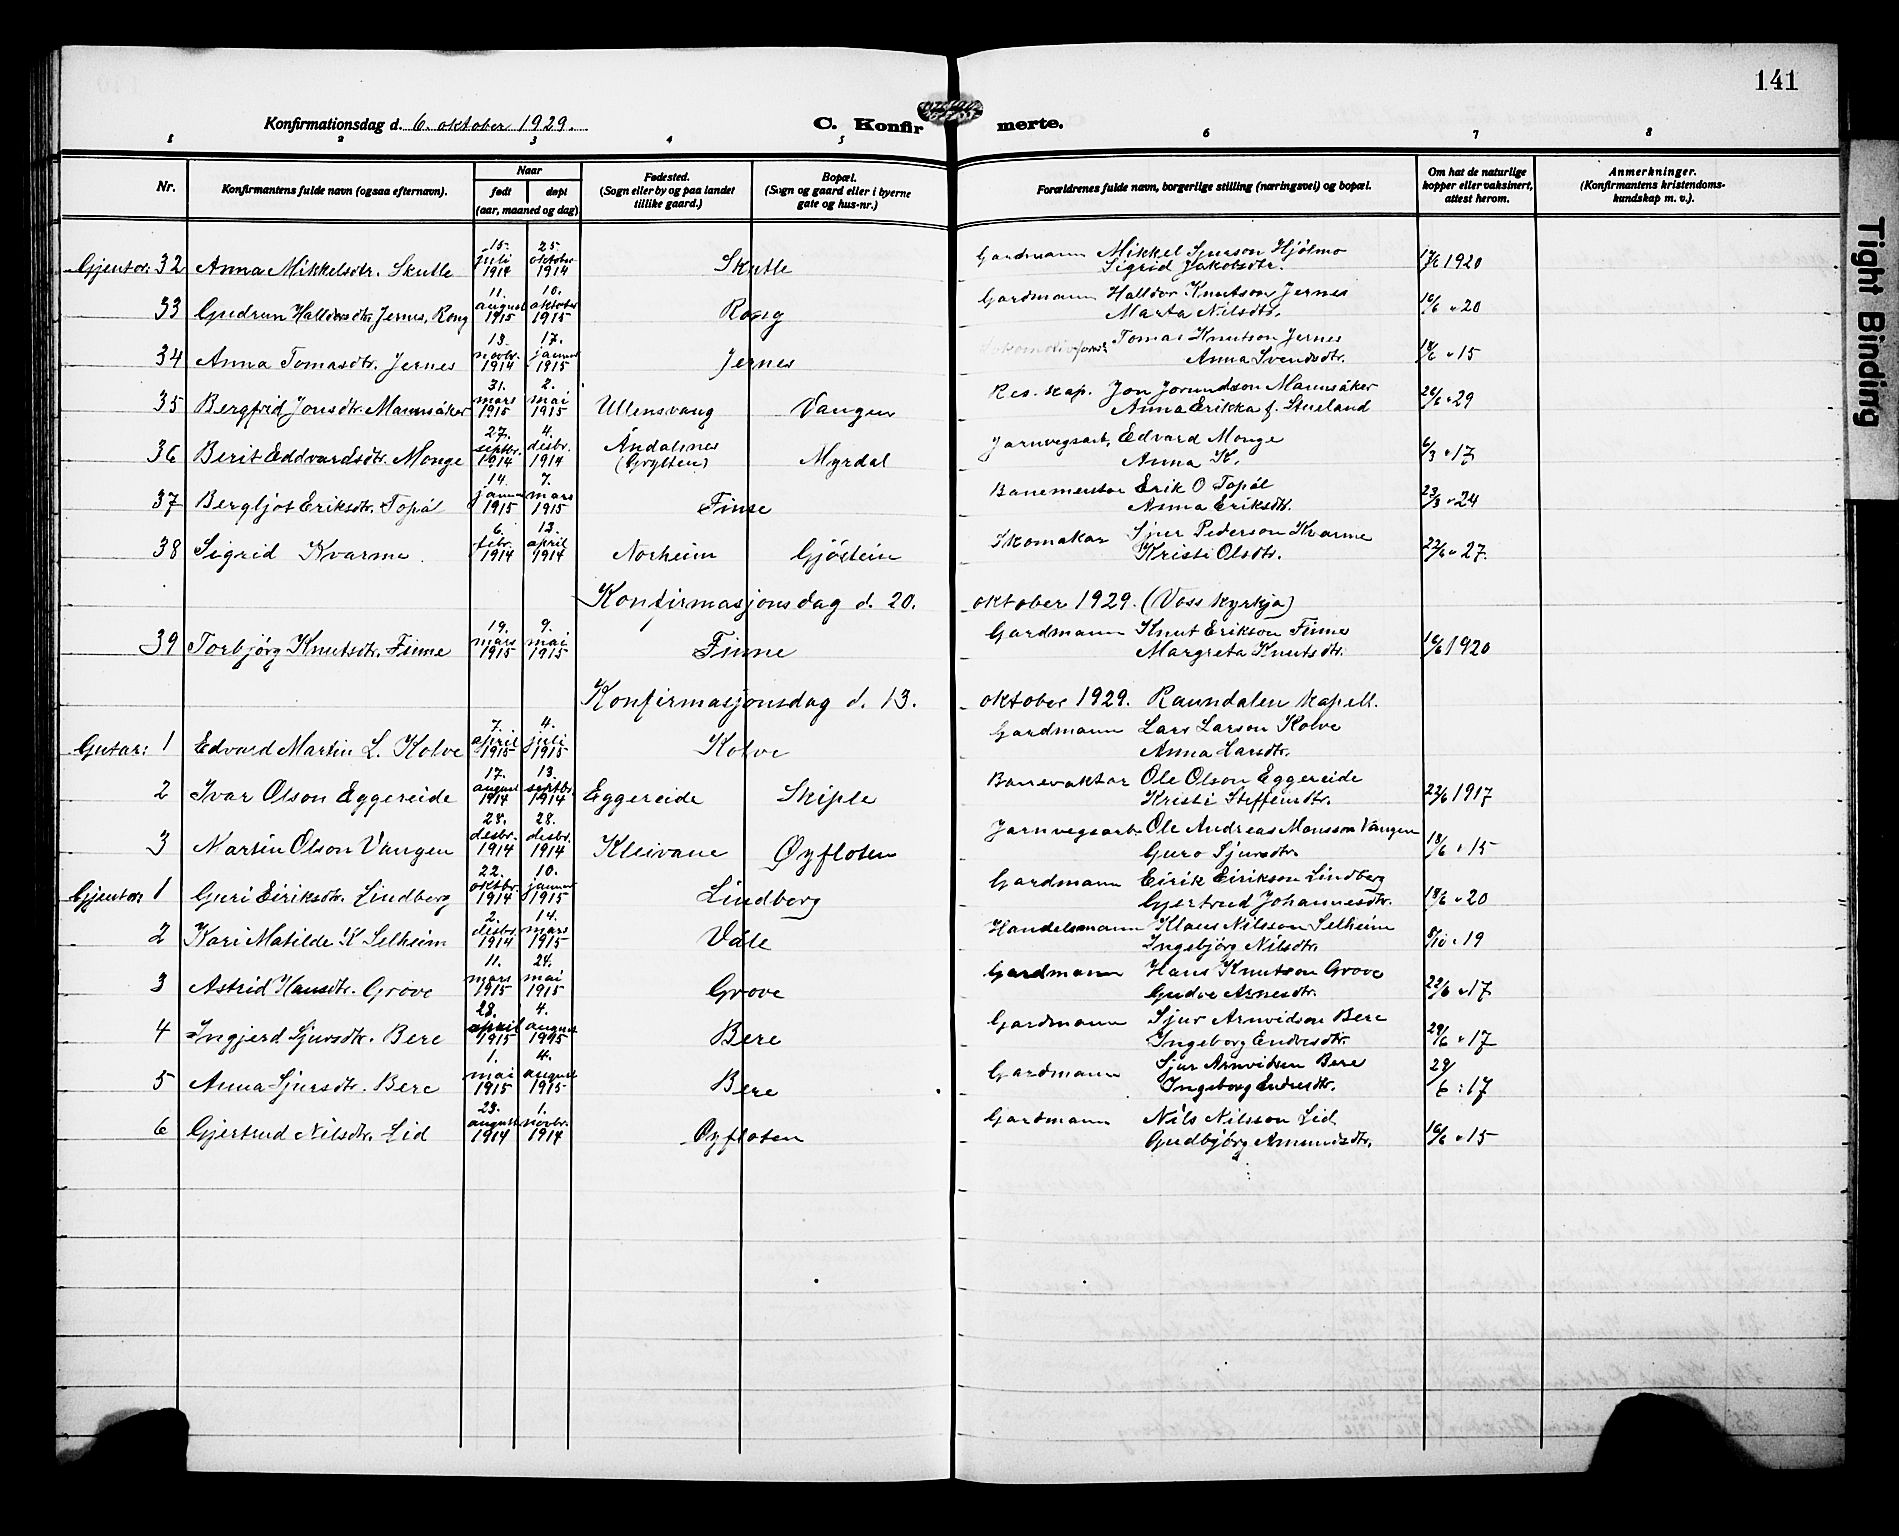 141
Konfirmationsdag d. 6. oktober 1929.
C. Konfirmerte.
1 2 3 4 5 6 7 8
Nr.
Konfirmantens fulde navn (ogsaa efternavn).
Naar
født døpt
(aar, maaned og dag)
Fødested. (Sogn eller by og paa landet tillike gaard.)
Bopæl. (Sogn og gaard eller i byerne gate og hus-nr.)
Forældrenes fulde navn, borgerlige stilling (næringsvei) og bopæl.
Om hat de naturlige kopper eller vaksinert, attest herom.
Anmerkninger. (Konfirmantens kristendomskundskap m. v.).
Gjentor: 32 Anna Mikkelsdtr. Skutle 15. juli 1914 25. oktober 1914 Skutle Gardmann Mikkel Sjurson Hjølmo
Sigrid Jakobsdtr. 1920
33 Gudrun Halldorsdtr. Jernes, Rong 11. august 1915 10. oktober 1915 Rong Gardmann Halldor Knutson Jernes
Marta Nilsdtr. 16/6 " 20
34 Anna Tomasdtr. Jernes 13. novbr. 1914 17. januar 1915 Jernes Tomas Knutson Jernes
Anna Svendsdtr. 18/6 " 15
35 Bergfrid Jonsdtr. Mannsåker 31. mars 1915 2. mai 1915 Ullensvang Vangen Res. kap. Jon Jorundson Mannsåker
Anna Erikka f. Stueland 26/6 " 29
36 Berit Eddvardsdtr. Monge 27. septbr. 1914 4. desbr. 1914 Åndalsnes (Grytten) Myrdal Jarnvegsarb. Edvard Monge
Anna K. 6/3 " 17
37 Bergljot Eriksdtr. Topål 14. januar 1915 7. mars 1915 Finse Banemestar Erik O Topål
Anna Eriksdtr. 23/3 " 24
38 Sigrid Kvarme. 6. febr. 1914 13. april 1914 Norheim Gjøstein Skomakar Sjur Pederson Kvarme
Kristi Olsdtr. 22/6 " 27.
Konfirmasjonsdag d. 20. oktober 1929. (Voss kyrkja)
39 Torbjørg Knutsdtr. Finne 19. mars 1915 9. mai 1915 Finne Gardmann Knut Erikson Finne
Margreta Knutsdtr. 16/6 1920
Konfirmasjonsdag d. 13. oktober 1929. Raundalen kapell.
Gutar: 1 Edvard Martin L. Kolve 7. april 1915 4. juli 1915 Kolve Gardmann Lars Larson Kolve
Anna Larsdtr.
2 Ivar Olson Eggereide 17. august 1914 13. septbr. 1914 Eggereide Skiple Banevaktar Ole Olson Eggereide
Kristi Steffensdtr. 22/6 1917
3 Martin Olson Vangen 28. desbr. 1914 28. desbr. 1914 Kleivane Øyfloten Jarnvegsarb. Ole Andreas Monsson Vangen
Guro Sjursdtr. 18/6 " 15
Gjentor: 1 Guri Eiriksdtr. Lindberg 22. oktbr. 1914 10. januar 1915 Lindberg Gardmann Eirik Eirikson Lindberg
Gjertrud Johannesdtr. 18/6 " 20
2 Kari Matilde K Selheim 2. desbr. 1914 14. mars 1915 Våle Handelsmann Klaus Nilsson Selheim
Ingebjørg Nilsdtr. 8/10 " 19
3 Astrid Hansdtr. Grove 11. mars 1915 24. mai 1915 Grove Gardmann Hans Knutson Grove
Gudve Arnesdtr. 22/6 " 17
4 Ingjerd Sjursdtr. Bere 28. april 1915 4. august 1915 Bere Gardmann Sjur Arnvidson Bere
Ingeborg Endresdtr. 29/6 " 17
5 Anna Sjursdtr. Bere 1. mai 1915 4. august 1915 Bere Gardmann Sjur Arnvidsen Bere
Ingeborg Endresdtr. 29/6 : 17
6 Gjertrud Nilsdtr. Lid 23. august 1914 1. novbr. 1914 Øyfloten Gardmann Nils Nilsson Lid
Gudbjørg Amundsdtr. 16/6 " 15
Tight Binding